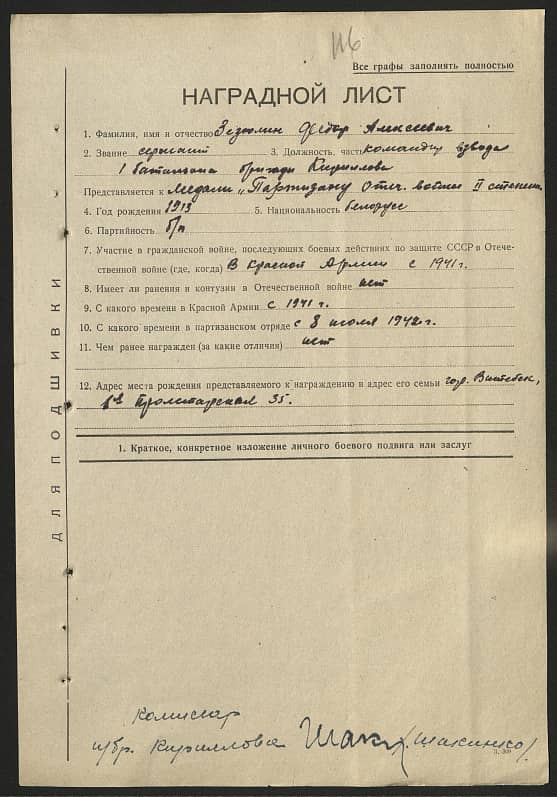 116
Все графы заполнять полностью
НАГРАДНОЙ ЛИСТ
1. Фамилия, имя и отчество Зезюлин Федор Алексеевич
2. Звание сержант 3. Должность, часть командир взвода
1 батальона бригады Кириллова
Представляется к медали "Партизану Отеч. войны II степени
4. Год рождения 1913 5. Национальность белорусс
6. Партийность б/п
7. Участие в гражданской войне, последующих боевых действиях по защите СССР в Отече-
ственной войне (где, когда) В Красной Армии с 1941 г.
8. Имеет ли ранения и контузии в Отечественной войне нет
9. С какого времени в Красной Армии с 1941 г.
10. С какого времени в партизанском отряде с 8 июля 1942 г.
11. Чем ранее награжден (за какие отличия) нет
12. Адрес места рождения представляемого к награждению в адрес его семьи гор. Витебск,
Пролетарская 35.
1. Краткое, конкретное изложение личного боевого подвига или заслуг
ДЛЯ ПОДШИВКИ
Комиссар
п/бр. Кириллова (Шакинко).